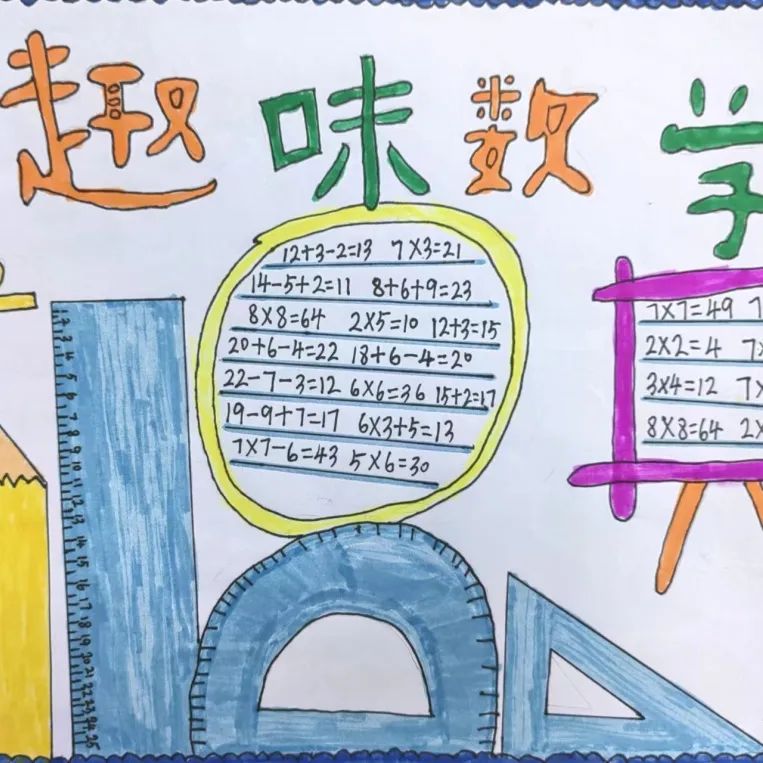 趣味数学
12+3-2=13 7×3=21
14-5+2=11 8+6+9=23
8×8=64 2×5=10 12+3=15
20+6-4=22 18+6-4=20
22-7-3=12 6×6=36 15+2=17
19-9+7=17 6×3+5=13
7×7-6=43 5×6=30
7×7=49 7
2×2=4 7×
3×4=12 7×
8×8=64 2×
1 2 3 4 5 6 7 8 9 10 11 12 13 14 15 16 17 18 19 20 21 22 23 24 25